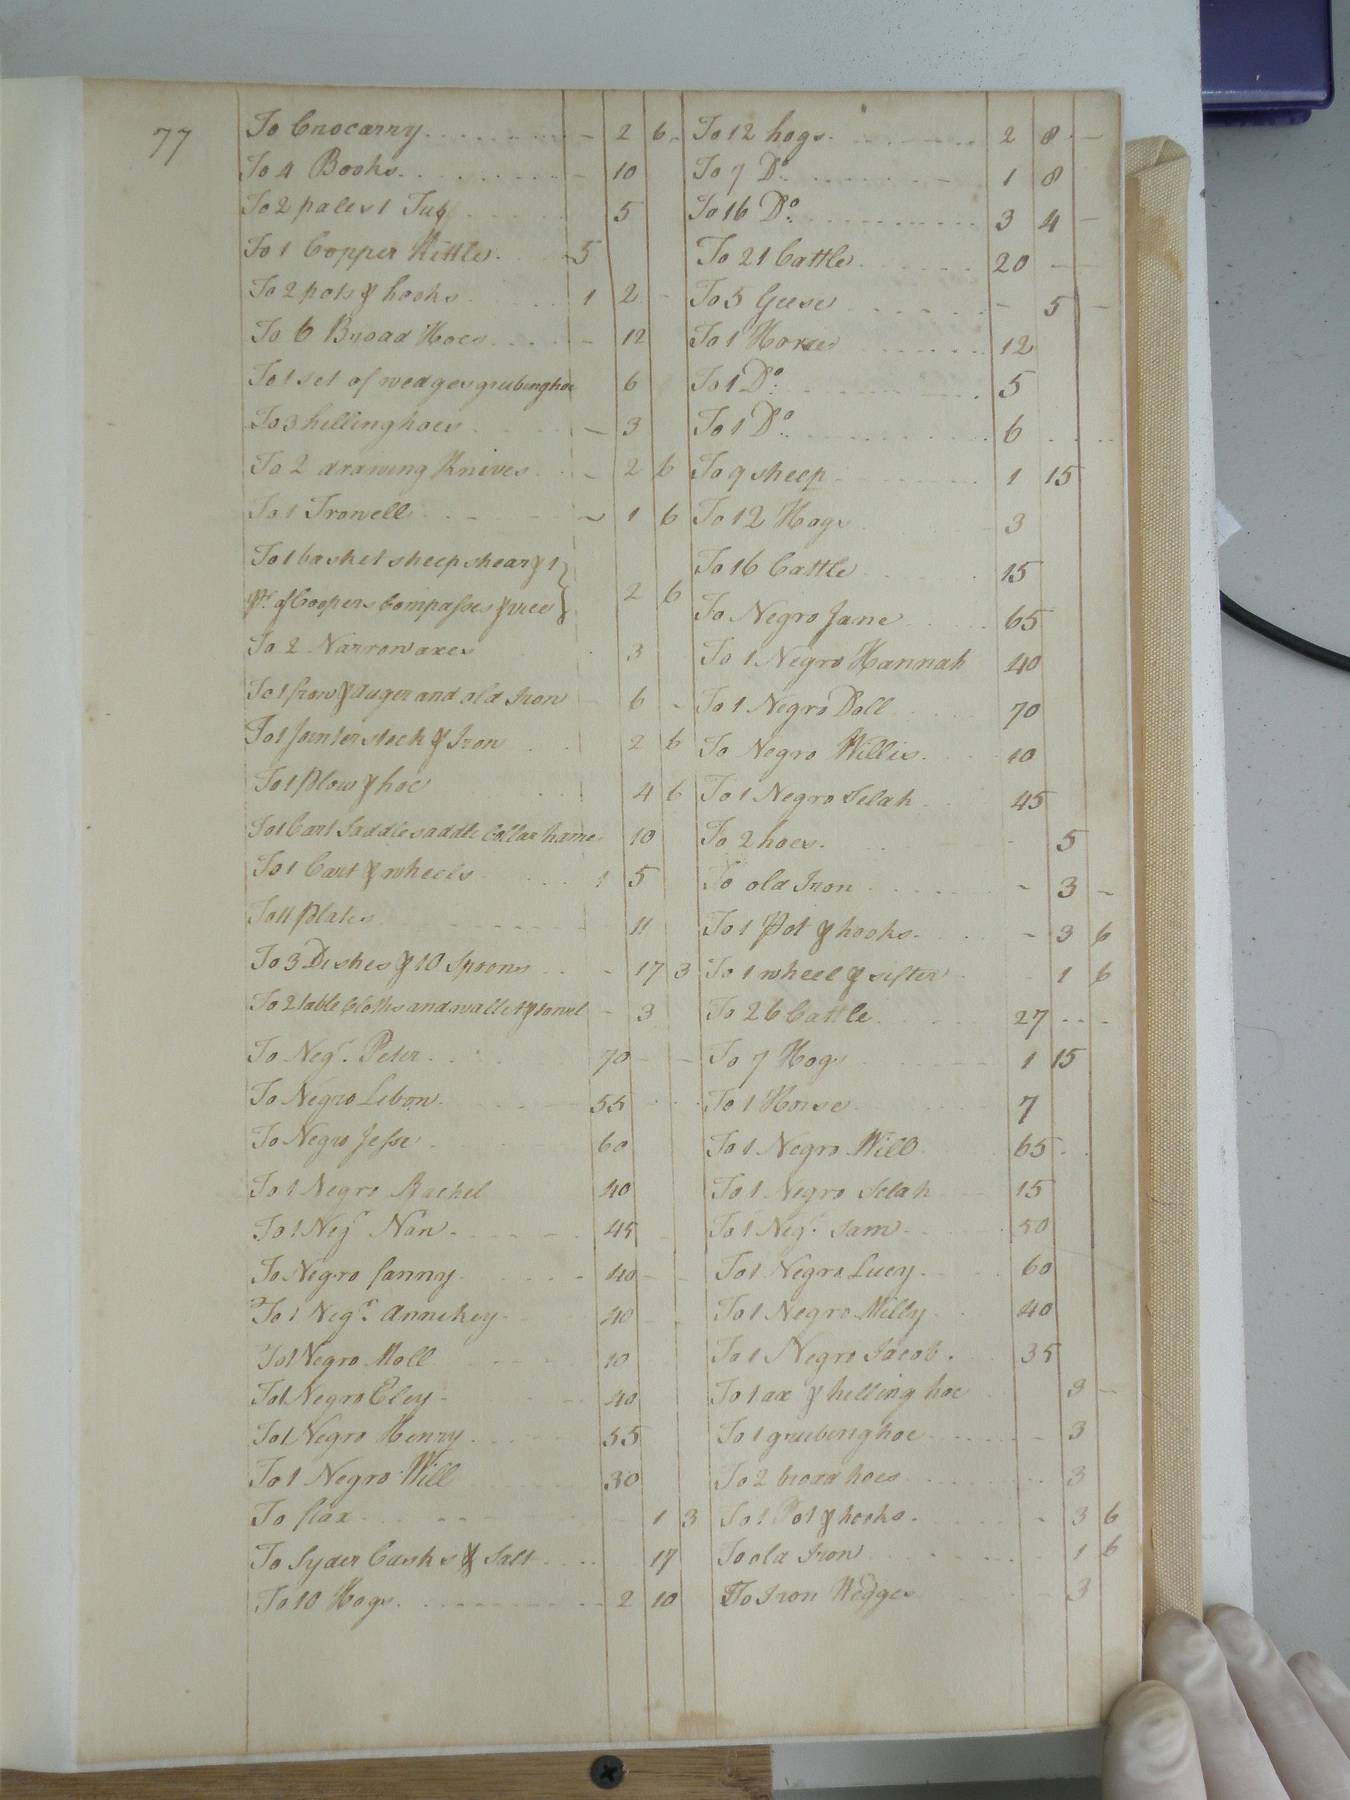 77
To Crocarry - 2 6
To 4 Books - 10
To 2 pales 1 Tub 5
To 1 Copper Kettle 5
To 2 pots & hooks 1 2 -
To 6 Broad Hoes - 12
To 1 set of wedges grubinghoe 6
To 3 hillinghoes - 3
To 2 drawing Knives - 2 6
To 1 Trowell - 1 6
To 1 basket sheepshear & 1
pr. of Coopers Compasses & vice 2 6
To 2 Narrow axes 3
To 1 frow & auger and old Iron 6 -
To 1 Jointer stock & Iron 2 6
To 1 Plow & hoe 4 6
To 1 Cart Saddle saddle Collar hame 10
To 1 Cart & wheels 1 5
To 11 Plates 11
To 3 Dishes & 10 Spoons - 17 3
To 2 table Cloths and wallet & towel - 3
To Negr. Peter 70 - -
To Negro Lebon 55
To Negro Jesse 60
To 1 Negro Rachel 40
To 1 Negr Nan 45
To Negro fanny 40 - -
To 1 Negr. Annikey 40
To 1 Negro Moll 10
To 1 Negro Eley 40
To 1 Negro Henry 55
To 1 Negro Will 30
To flax 1 3
To Syder Casks & Salt 17
To 10 Hogs 2 10
To 12 hogs 2 8 -
To 7 Do. 1 8
To 16 Do. 3 4 -
To 21 Cattle 20 - -
To 5 Geese - 5 -
To 1 Horse 12
To 1 Do. 5
To 1 Do. 6
To 9 sheep 1 15
To 12 Hogs 3
To 16 Cattle 15
To Negro Jane 65
To 1 Negro Hannah 40
To 1 Negro Doll 70
To Negro Willis 10
To 1 Negro Selah 45
To 2 hoes - 5
To old Iron - 3 -
To 1 Pot & hooks - 3 6
To 1 wheel & sifter - 1 6
To 26 Cattle 27 - -
To 7 Hogs 1 15
To 1 Horse 7
To 1 Negro Will 65
To 1 Negro Selah 15
To 1 Negr. Sam 50
To 1 Negro Lucy 60
To 1 Negro Milly 40
To 1 Negro Jacob 35
To 1 ax & hilling hoe 3 -
To 1 grubinghoe - 3
To 2 broad hoes 3
To 1 Pot & hooks - 3 6
To old Iron 1 6
To Iron Wedges 3